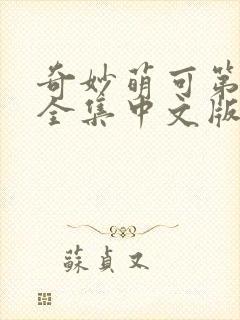 奇妙萌可第
全集中文版
蘇貞又